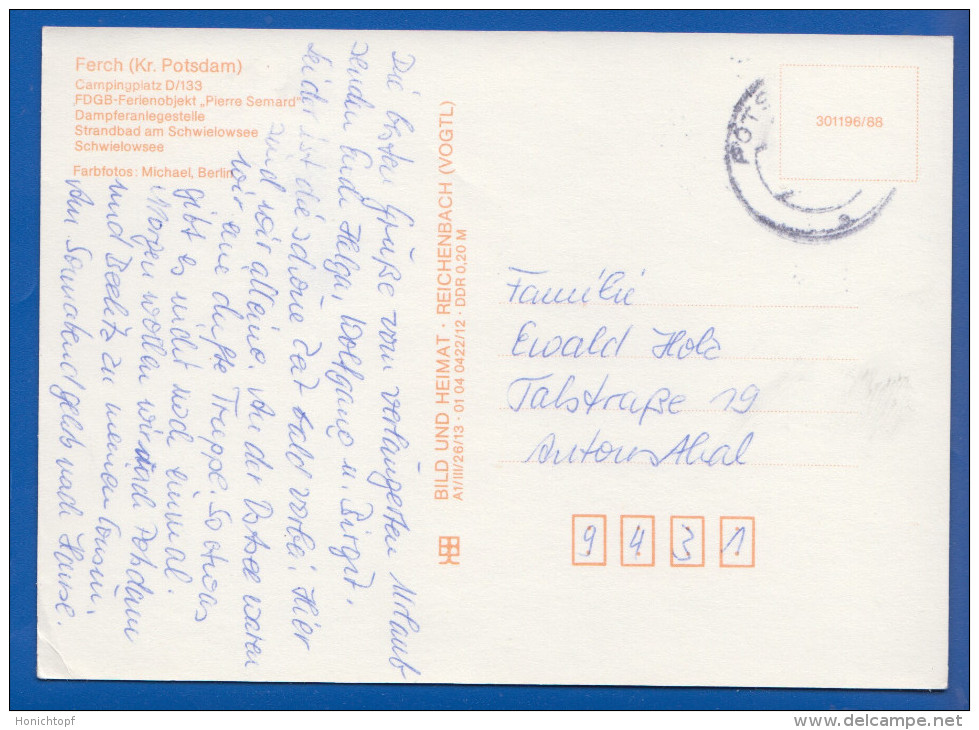 Ferch (Kr. Potsdam)
Campingplatz D/133
FDGB-Ferienobjekt „Pierre Semard"
Dampferanlegestelle
Strandbad am Schwielowsee
Schwielowsee
Farbfotos: Michael, Berlin
Die besten Grüße vom verlängerten Urlaub
senden Euch Helga, Wolfgang u. Birgit.
Leider ist die schöne Zeit bald vorbei. Hier
sind wir alleine. An der Ostsee waren
wir eine dufte Truppe. So etwas
gibt es nicht noch einmal.
Morgen wollen wir nach Potsdam
und Beelitz zu meinen Cousin.
Am Sonnabend gehts nach Hause.
BILD UND HEIMAT · REICHENBACH (VOGTL)
A1/III/26/13 · 01 04 0422/12 · DDR 0,20 M
POTS
301196/88
Familie
Ewald Holz
Talstraße 19
Antonsthal
9 4 3 1
Honichtopf
www.delcampe.net